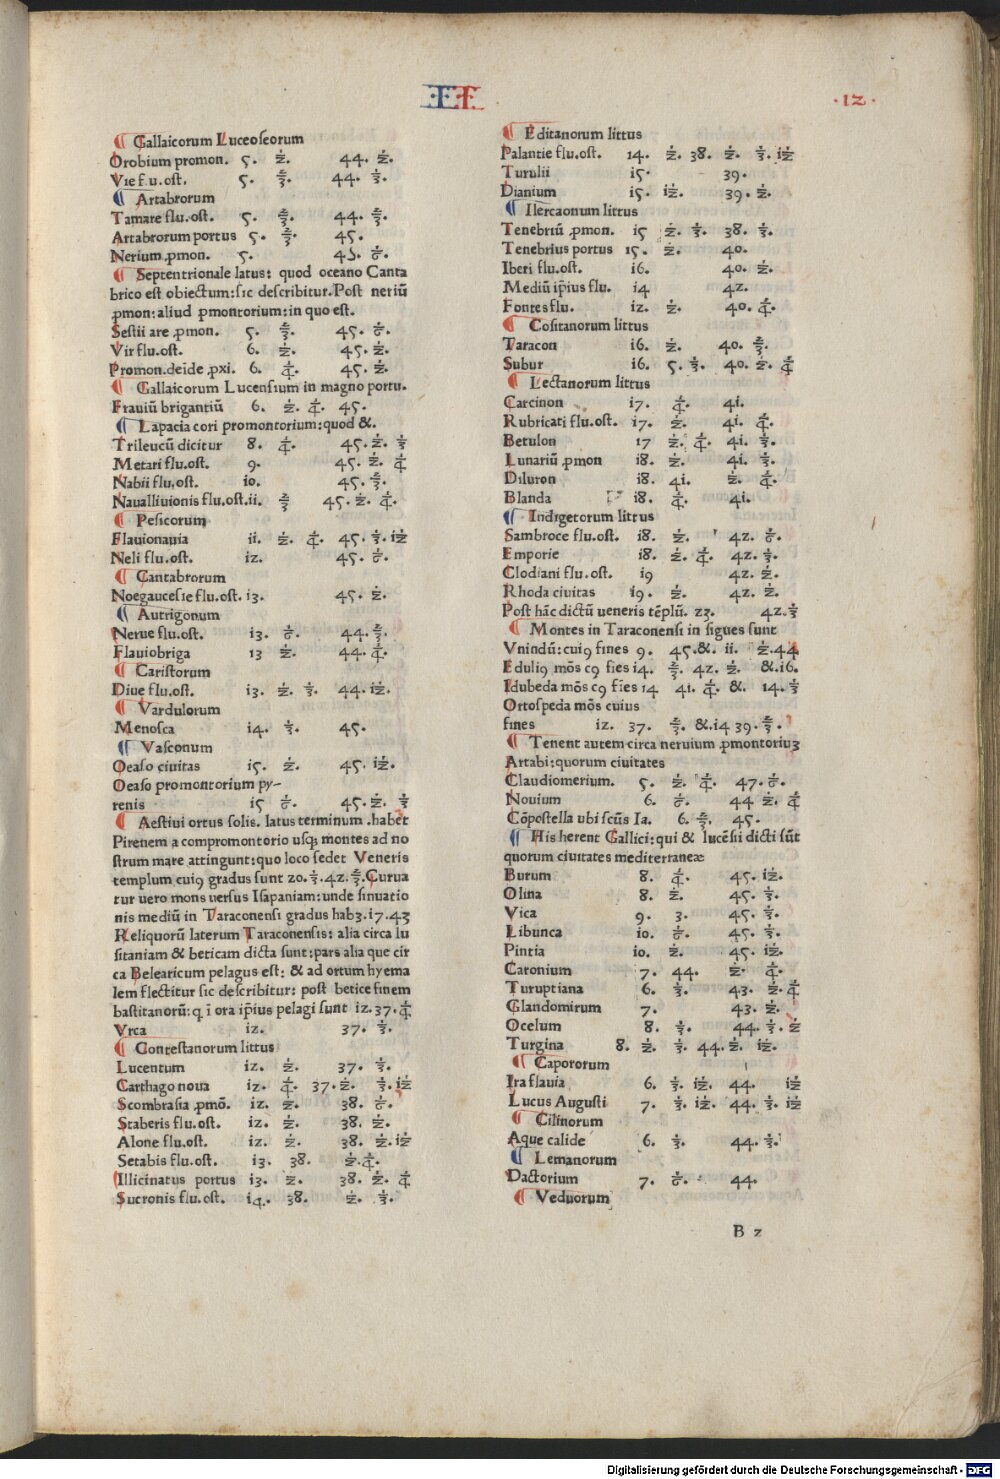 ·II·
·12·
¶ Gallaicorum Luceoseorum
Orobium promon. 5. ½. 44. ½.
Vie flu.ost. 5. ⅔. 44. ⅓.
¶ Artabrorum
Tamare flu.ost. 5. ⅔. 44. ⅔.
Artabrorum portus 5. ⅔. 45.
Nerium ꝓmon. 5. 45. ⅙.
¶ Septentrionale latus: quod oceano Canta
brico est obiectum: sic describitur. Post neriū
ꝓmon: aliud ꝓmontorium: in quo est.
Sestii are ꝓmon. 5. ⅔. 45. ⅙.
Vir flu.ost. 6. ½. 45. ½.
Promon.deīde ꝓxi. 6. ¼. 45. ½.
¶ Gallaicorum Lucensium in magno portu.
Frauiū brigantiū 6. ½. ¼. 45.
¶ Lapacia cori promontorium: quod &.
Trileucū dicitur 8. ¼. 45. ½. ⅓
Metari flu.ost. 9. 45. ½. ¼
Nabii flu.ost. 10. 45. ⅔.
Naualliuionis flu.ost.ii. ⅔ 45. ½. ¼.
¶ Pesicorum
Flauionauia ii. ½. ¼. 45. ⅓. i½
Neli flu.ost. i2. 45. ⅙.
¶ Cantabrorum
Noegaucesie flu.ost. i3. 45. ½.
¶ Autrigonum
Nerue flu.ost. i3. ⅙. 44. ⅔.
Flauiobriga i3 ½. 44. ¼.
¶ Caristorum
Diue flu.ost. i3. ½. ⅓. 44. i½.
¶ Vardulorum
Menosca i4. ⅓. 45.
¶ Vasconum
Oeaso ciuitas i5. ½. 45. i½.
Oeaso promontorium py-
renis i5 ⅙. 45. ½. ⅓
¶ Aestiui ortus solis. latus terminum .habet
Pirenem a compromontorio usqȝ montes ad no
strum mare attingunt: quo loco sedet Veneris
templum cuiꝰ gradus sunt 20. ⅓. 42. ⅔. Curua
tur uero mons uersus Isapaniam: unde sinuatio
nis mediū in Taraconensi gradus habȝ. i7. 43
Reliquorū laterum Taraconensis: alia circa lu
sitaniam & beticam dicta sunt: pars alia que cir
ca Belearicum pelagus est: & ad ortum hyema
lem flectitur sic describitur: post betice finem
bastitanorū: q ī ora ip̄ius pelagi sunt i2. 37. ¼
Vrca i2. 37. ⅓.
¶ Contestanorum littus
Lucentum i2. ½. 37. ⅓.
Carthago noua i2. ¼. 37. ½. ⅓. i½
Scombrasia ꝓmō. i2. ½. 38. ⅙.
Staberis flu.ost. i2. ½. 38. ½.
Alone flu.ost. i2. ½. 38. ½. i½
Setabis flu.ost. i3. 38. ½. ¼.
Illicinatus portus i3. ½. 38. ½. ¼
Sucronis flu.ost. i4. 38. ½. ⅓.
¶ Editanorum littus
Palantie flu.ost. 14. ½. 38. ½. ⅓. i½
Turulii i5. 39.
Dianium i5. i½. 39. ½.
¶ Ilercaonum littus
Tenebriū ꝓmon. i5 ½. ⅓. 38. ⅓.
Tenebrius portus 15. ½. 40.
Iberi flu.ost. i6. 40. ½.
Mediū ip̄ius flu. i4 42.
Fontes flu. i2. ½. 40. ¼.
¶ Cositanorum littus
Taracon i6. ½. 40. ⅔.
Subur i6. 5. ⅓. 40. ½. ¼
¶ Lectanorum littus
Carcinon i7. ¼. 4i.
Rubricati flu.ost. i7. ½. 4i. ¼.
Betulon i7 ½. ¼. 4i. ⅓.
Lunariū ꝓmon i8. ½. 4i. ⅓.
Diluron i8. 4i. ½. ¼.
Blanda i8. ¼. 4i.
¶ Indigetorum littus
Sambroce flu.ost. i8. ½. 42. ⅙.
Emporie i8. ½. ¼. 42. ⅓.
Clodiani flu.ost. i9 42. ½.
Rhoda ciuitas i9. ½. 42. ½.
Post hāc dictū ueneris tēplū. 23. 42. ⅓
¶ Montes in Taraconensi in signes sunt
Vnindū: cuiꝰ fines 9. 45. &. ii. ½. 44
Eduliꝰ mōs cꝰ fies i4. ⅔. 42. ½. &. i6.
Idubeda mōs cꝰ fīes i4 4i. ¼. &. 14. ⅓
Ortospeda mōs cuius
fines i2. 37. ⅔. &. i4 39. ⅔.
¶ Tenent autem circa neruium ꝓmontoriuȝ
Artabi: quorum ciuitates
Claudiomerium. 5. ½. ¼. 47. ⅙.
Nouium 6. ⅙. 44 ½. ¼
Cōpostella ubi scūs Ia. 6. ⅔. 45.
¶ His herent Gallici: qui & lucēsii dicti sūt
quorum ciuitates mediterraneæ
Burum 8. ¼. 45. i½.
Olina 8. ½. 45. ⅓.
Vica 9. 3. 45. ⅓.
Libunca i0. ⅙. 45. ⅓.
Pintia i0. ½. 45. i½.
Caronium 7. 44. ½. ¼.
Turuptiana 6. ⅓. 43. ½. ¼
Glandomirum 7. 43. ½.
Ocelum 8. ⅓. 44. ⅓. ½
Turgina 8. ½. ⅓. 44. ½. i½.
¶ Capororum
Ira flauia 6. ⅓. i½. 44. i½
Lucus Augusti 7. ⅓. i½. 44. ⅓. i½
¶ Cilinorum
Aque calide 6. ⅓. 44. ⅓.
¶ Lemanorum
Dactorium 7. ⅙. 44.
¶ Veduorum
B 2
Digitalisierung gefördert durch die Deutsche Forschungsgemeinschaft - DFG